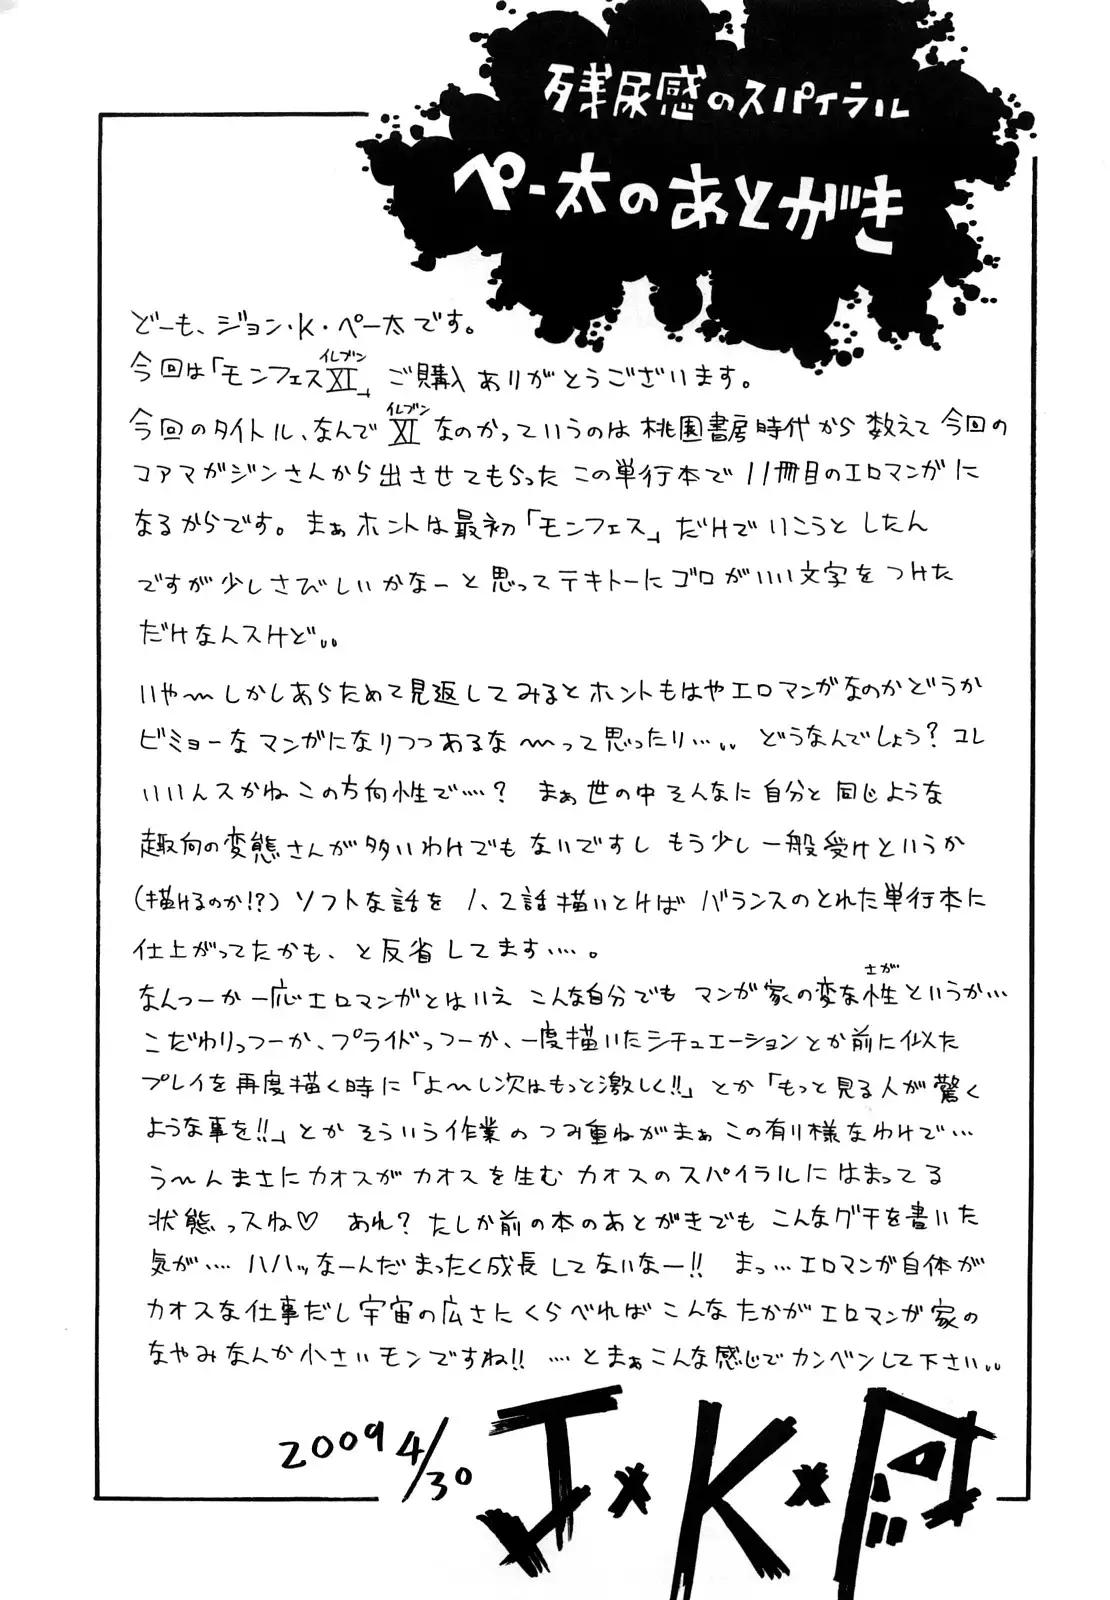 残尿感のスパイラル
ペー太のあとがき
どーも、ジョン・K・ペー太です。
今回は「モンフェスXI」ご購入ありがとうございます。
イレブン
今回のタイトル、なんでXIなのかっていうのは桃園書房時代から数えて今回の
イレブン
コアマガジンさんから出させてもらったこの単行本で11冊目のエロマンガに
なるからです。まぁホントは最初「モンフェス」だけでいこうとしたん
ですが少しさびしいかなーと思ってテキトーにゴロがいい文字をつけた
だけなんスけど…
いや〜しかしあらためて見返してみるとホントもはやエロマンガなのかどうか
ビミョーなマンガになりつつあるな〜って思ったり……どうなんでしょう?コレ
いいんスかねこの方向性で…?まぁ世の中そんなに自分と同じような
趣向の変態さんが多いわけでもないですしもう少し一般受けというか
(描けるのか!?)ソフトな話を1、2話描いとけばバランスのとれた単行本に
仕上がってたかも、と反省してます…。
なんつーか一応エロマンガとはいえこんな自分でもマンガ家の変な性というか…
さが
こだわりっつーか、プライドっつーか、一度描いたシチュエーションとか前に似た
プレイを再度描く時に「よ〜し次はもっと激しく!!」とか「もっと見る人が驚く
ような事を!!」とかそういう作業のつみ重ねがまぁこの有り様なわけで…
う〜んまさにカオスがカオスを生むカオスのスパイラルにはまってる
状態っスね♡ あれ?たしか前の本のあとがきでもこんなグチを書いた
気が…ハハッなーんだまったく成長してないなー!! まっ…エロマンガ自体が
カオスな仕事だし宇宙の広さにくらべればこんなたかがエロマンガ家の
なやみなんか小さいモンですね!! …とまぁこんな感じでカンベンして下さい…
2009 4/30
J×K×P